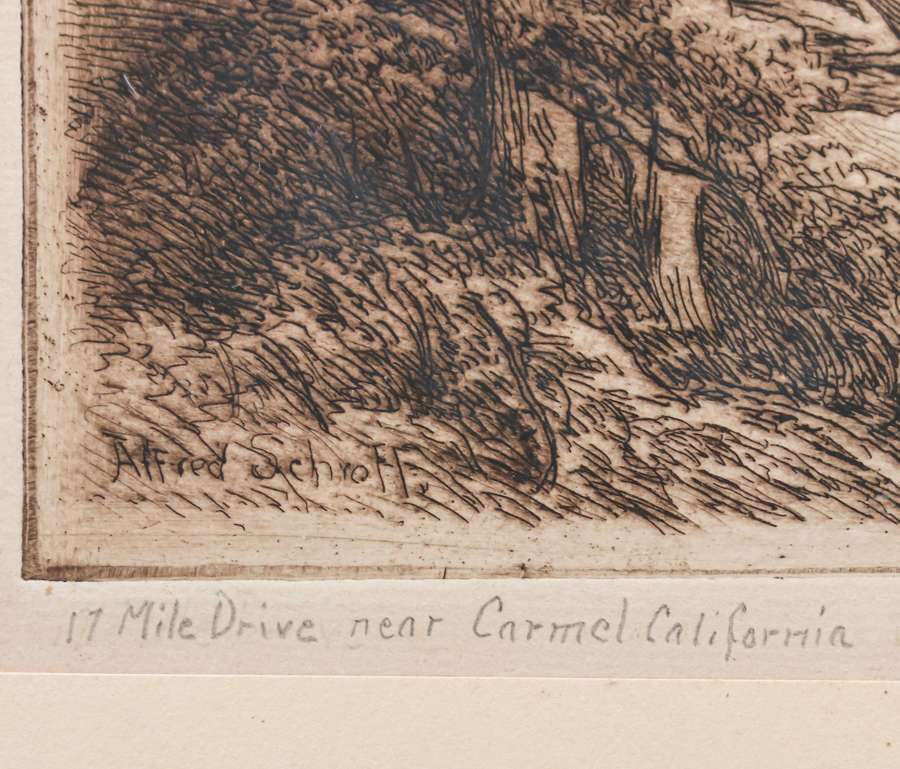 Alfred Schroff
17 Mile Drive near Carmel California